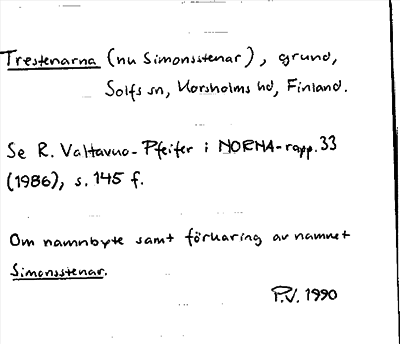 Trestenarna (nu Simonsstenar), grund,
Solfs sn, Korsholms hd, Finland.
Se R. Valtavuo-Pfeifer i NORNA-rapp. 33
(1986), s. 145 f.
Om namnbyte samt förklaring av namnet
Simonsstenar.
P.V. 1990